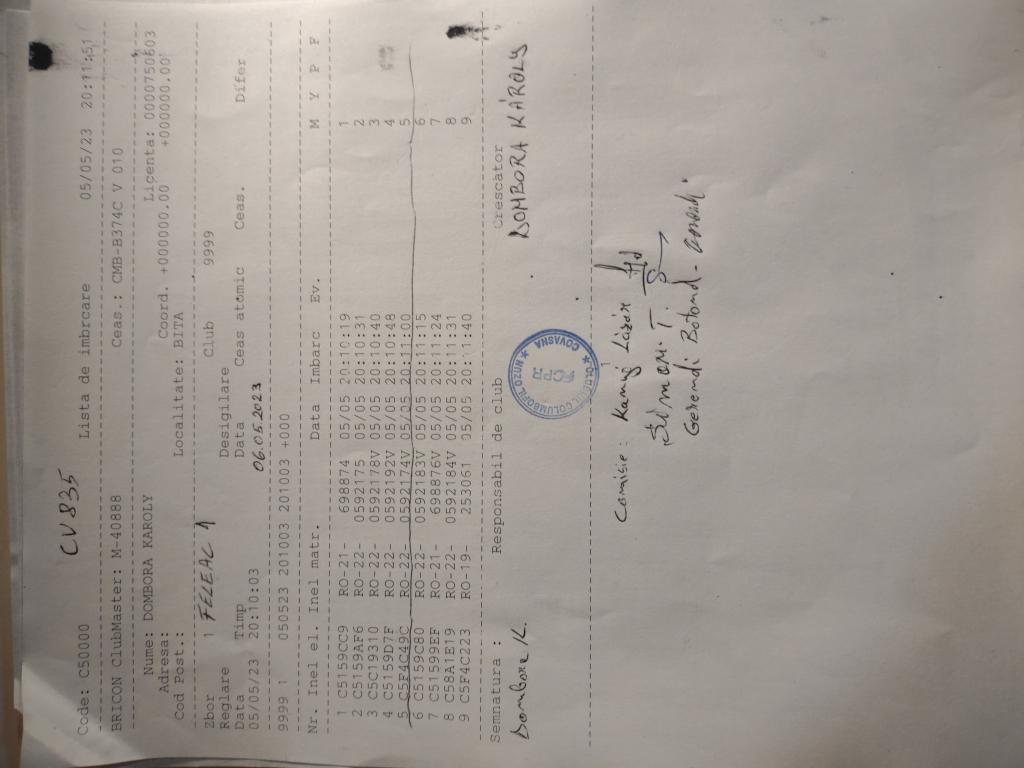 CV835
Code: C50000 Lista de imbrcare 05/05/23 20:11:51
BRICON ClubMaster: M-40888 Ceas.: CMB-B374C V 010
Nume: DOMBORA KAROLY Licenta: 0000750603
Adresa: Coord. +000000.00 +000000.00
Cod Post.: Localitate: BITA
Zbor 1 FELEAC 1 Club 9999
Reglare Desigilare
Data Timp Data Ceas atomic Ceas. Difer
05/05/23 20:10:03 06.05.2023
9999 1 050523 201003 201003 +000
Nr. Inel el. Inel matr. Data Imbarc Ev. M Y P F
1 C5159CC9 RO-21- 698874 05/05 20:10:19 1
2 C5159AF6 RO-22- 0592175 05/05 20:10:31 2
3 C5C19310 RO-22- 0592178V 05/05 20:10:40 3
4 C5159D7F RO-22- 0592192V 05/05 20:10:48 4
5 C5F4C49C RO-22- 0592174V 05/05 20:11:00 5
6 C5159C80 RO-22- 0592183V 05/05 20:11:15 6
7 C51599EF RO-21- 698876V 05/05 20:11:24 7
8 C58A1E19 RO-22- 0592184V 05/05 20:11:31 8
9 C5F4C223 RO-19- 253061 05/05 20:11:40 9
Semnatura : Responsabil de club Crescător
Dombora K. DOMBORA KÁROLY
FCPR
COVASNA
Comisie: